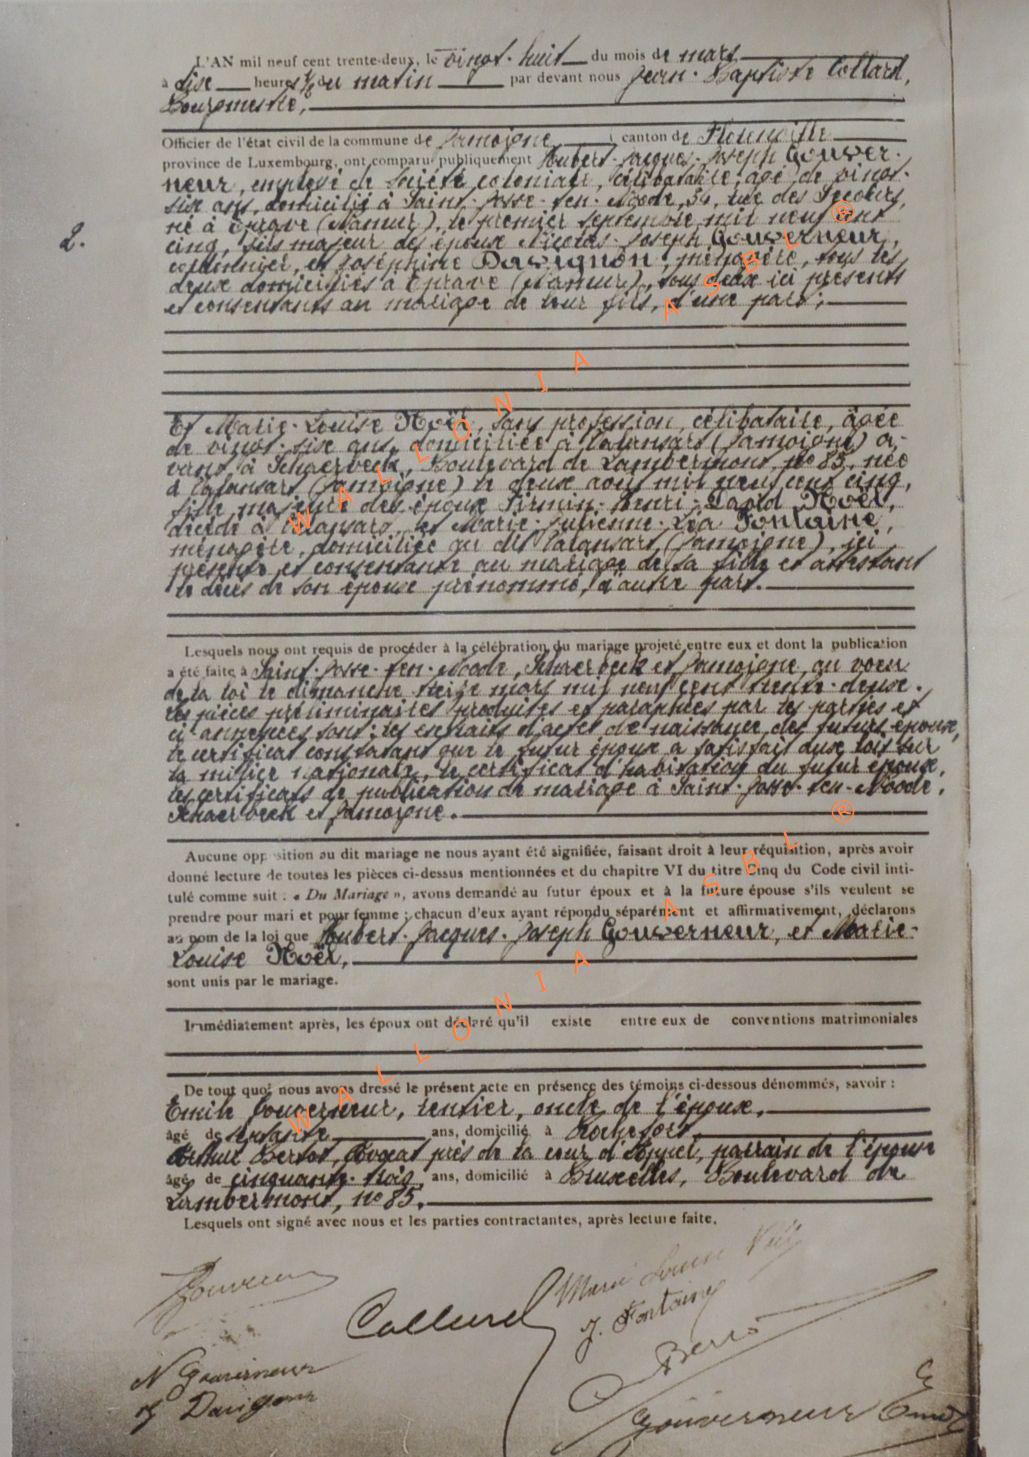 L'AN mil neuf cent trente-deux, le vingt-huit du mois de mars
à dix heures ½ du matin par devant nous Jean-Baptiste Collard,
Bourgmestre,
Officier de l'état civil de la commune de Jamoigne, canton de Florenville
province de Luxembourg, ont comparu publiquement Hubert-Jacques-Joseph Gouver-
neur, employé de société coloniale, célibataire, âgé de vingt-
six ans, domicilié à Saint-Josse-ten-Noode, 54, rue des Secours,
né à Eprave (Namur), le premier septembre mil neuf cent
2.
cinq, fils majeur des époux Nicolas-Joseph Gouverneur,
cordonnier, et Joséphine Davignon, ménagère, tous les
deux domiciliés à Eprave (Namur), tous deux ici présents
et consentants au mariage de leur fils, d'une part;
Et Marie-Louise Noël, sans profession, célibataire, âgée
de vingt-six ans, domiciliée à Valansart (Jamoigne) a-
vant à Schaerbeek, Boulevard de Lambermont, no 85, née
à Valansart (Jamoigne) le deux août mil neuf cent cinq,
fille majeure des époux Firmin-Henri-David Noël,
décédé à Valansart, et Marie-Julienne-Léa Fontaine,
ménagère, domiciliée au dit Valansart (Jamoigne), ici
présente et consentante au mariage de sa fille et attestant
le décès de son époux prénommé, d'autre part.
Lesquels nous ont requis de procéder à la célébration du mariage projeté entre eux et dont la publication
a été faite à Saint-Josse-ten-Noode, Schaerbeek et Jamoigne, au voeu
de la loi le dimanche treize mars mil neuf cent trente-deux.
Les pièces préliminaires produites et paraphées par les parties et
ci annexées sont: les extraits d'actes de naissance des futurs époux,
le certificat constatant que le futur époux a satisfait aux lois sur
la milice nationale, le certificat d'habitation du futur époux,
les certificats de publication de mariage à Saint-Josse-ten-Noode,
Schaerbeek et Jamoigne.
Aucune opposition au dit mariage ne nous ayant été signifiée, faisant droit à leur réquisition, après avoir
donné lecture de toutes les pièces ci-dessus mentionnées et du chapitre VI du titre Cinq du Code civil inti-
tulé comme suit : « Du Mariage », avons demandé au futur époux et à la future épouse s'ils veulent se
prendre pour mari et pour femme ; chacun d'eux ayant répondu séparément et affirmativement, déclarons
au nom de la loi que Hubert-Jacques-Joseph Gouverneur, et Marie-
Louise Noël,
sont unis par le mariage.
Immédiatement après, les époux ont déclaré qu'il existe entre eux de conventions matrimoniales
De tout quoi nous avons dressé le présent acte en présence des témoins ci-dessous dénommés, savoir :
Emile Gouverneur, rentier, oncle de l'époux,
âgé de septante ans, domicilié à Rochefort
Arthur Bertot, Avocat près de la cour d'Appel, parrain de l'époux
âgé de cinquante-trois ans, domicilié à Bruxelles, Boulevard de
Lambermont, no 85.
Lesquels ont signé avec nous et les parties contractantes, après lecture faite.
Gouverneur
Marie Louise Noël
Collard
J. Fontaine
N Gouverneur
J Davignon
Gouverneur Emile
WALLONIA ASBL ®
WALLONIA ASBL ®